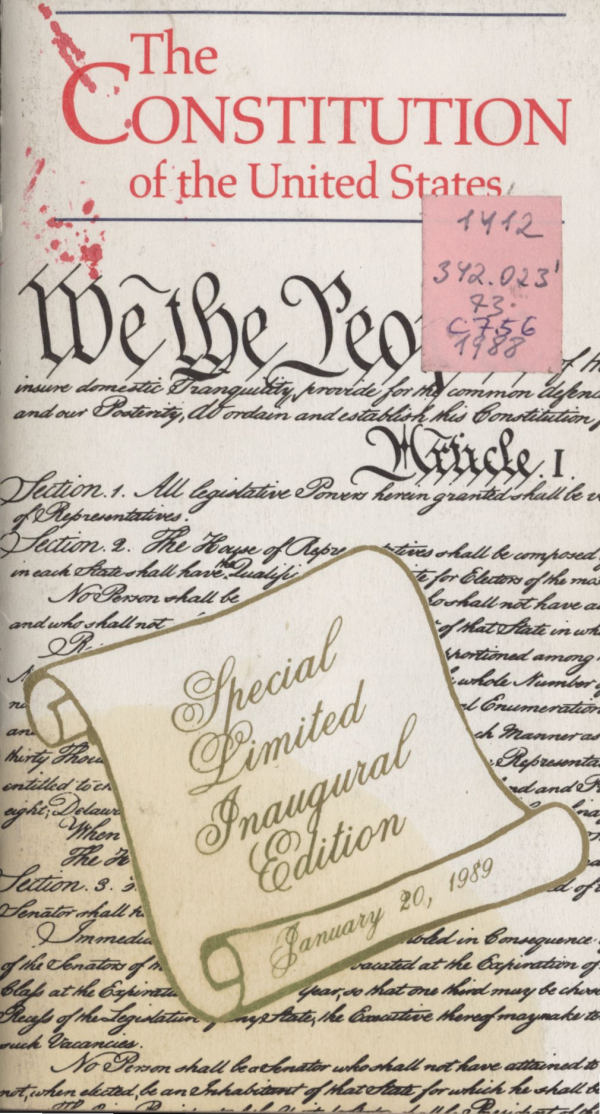 The
CONSTITUTION
of the United States
1412
342.023'
73.
C756
1988
We the Peo
of th
insure domestic Tranquility, provide for the common defenc
and our Posterity, do ordain and establish this Constitution f
Article I
Section. 1. All legislative Powers herein granted shall be v
of Representatives.
Section. 2. The House of Repre tives shall be composed
in each State shall have the Qualifi te for Electors of the mos
No Person shall be ho shall not have a
and who shall not of that State in wh
R portioned among
whole Number o
l Enumeration
an ch Manner as
thirty Thou Representa
entitled to ch
eight; Delawa
When
The H
Section. 3. d of t
Senator shall h
Immedia bled in Consequence
of the Senators of th vacated at the Expiration of
Class at the Expirati Year, so that one third may be chose
Recess of the Legislature of any State, the Executive thereof may make te
such Vacancies.
No Person shall be a Senator who shall not have attained to
not, when elected, be an Inhabitant of that State for which he shall be
Special
Limited
Inaugural
Edition
January 20, 1989